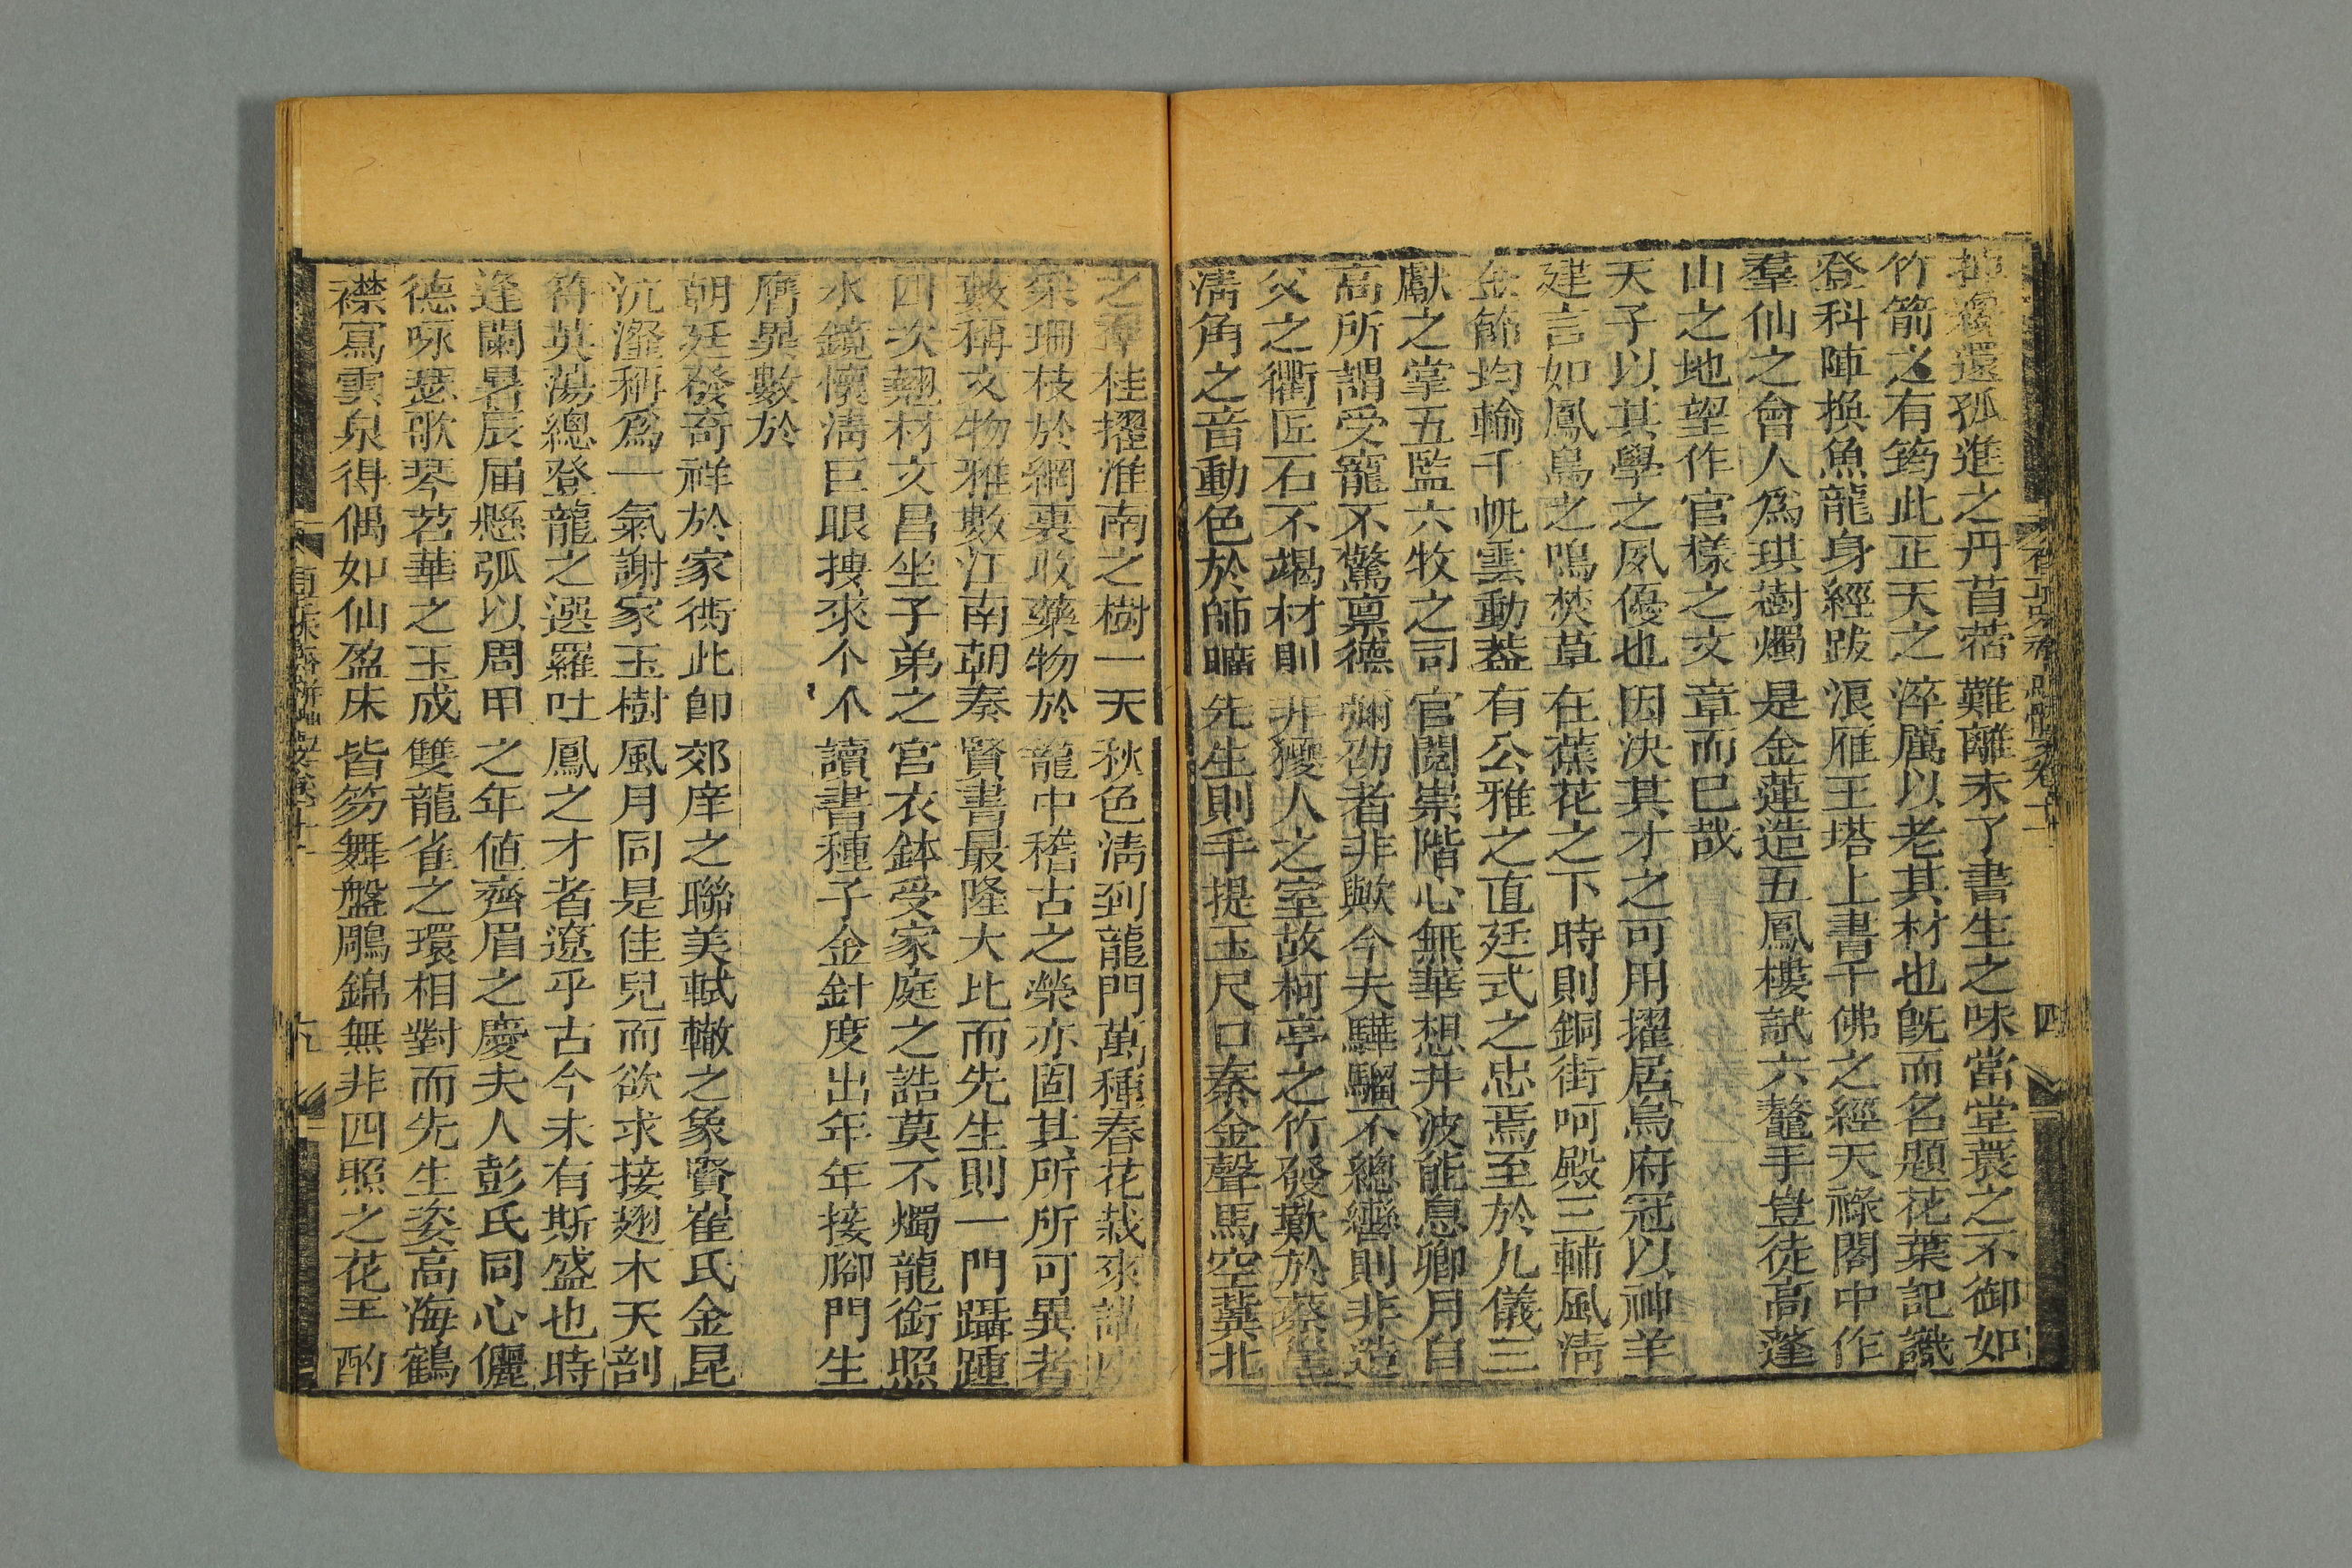 還孤進之丹苜蓿難離未了書生之味當堂蓑之不御如
竹箭之有筠此正天之淬厲以老其材也旣而名題花葉記讖
登科陣換魚龍身經跋浪雁王塔上書千佛之經天祿閣中作
羣仙之會人爲琪樹燭是金蓮造五鳳樓試六鼇手豈徒高蓬
山之地望作官樣之文章而已哉
天子以其學之夙優也因决其才之可用擢居烏府冠以神羊
建言如鳳鳥之鳴焚草在蕉花之下時則銅街呵殿三輔風淸
金節均輸千帆雲動蓋有公雅之直廷式之忠焉至於九儀三
獻之掌五監六牧之司官閱崇階心無華想井波能息卿月自
高所謂受寵不驚稟德彌劭者非歟今夫驊騮不總轡則非造
父之衢匠石不竭材則非獿人之室故柯亭之竹發歎於蔡邕
淸角之音動色於師曠先生則手提玉尺口奏金聲馬空冀北
之羣桂擢淮南之樹一天秋色淸到龍門萬種春花栽來講
采珊枝於網裏收藥物於籠中稽古之榮亦固其所所可異者
數稱文物雅數江南朝奏賢書最隆大比而先生則一門躡踵
四次翹材文昌坐子弟之宮衣鉢受家庭之誥莫不燭龍銜照
水鏡懷淸巨眼搜來个个讀書種子金針度出年年接腳門生
膺異數於
朝廷發奇祥於家衖此卽郊庠之聯美軾轍之象賢崔氏金昆
沆瀣稱爲一氣謝家玉樹風月同是佳兒而欲求接翅木天剖
符英蕩總登龍之選羅吐鳳之才者遼乎古今未有斯盛也時
逢闌暑辰屆懸弧以周甲之年値齊眉之慶夫人彭氏同心儷
德咏瑟歌琴苕華之玉成雙龍雀之環相對而先生姿高海鶴
襟寫雲泉得偶如仙盈床皆笏舞盤鵰錦無非四照之花玉酌
四